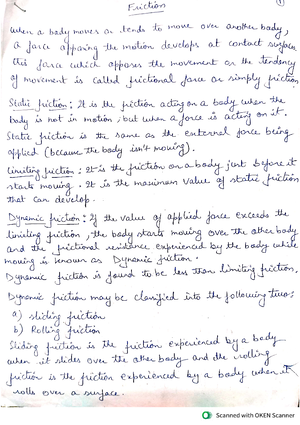 Friction
1
when a body moves or tends to move over another body,
a force opposing the motion develops at contact surface
this force which opposes the movement or the tendency
of movement is called frictional force or simply friction
Static friction: It is the friction acting on a body when the
body is not in motion, but when a force is acting on it.
Static friction is the same as the external force being
applied (because the body isn't moving).
Limiting friction: It is the friction on a body just before it
starts moving. It is the maximum value of static friction
that can develop.
Dynamic friction: If the value of applied force exceeds the
limiting friction, the body starts moving over the other body
and the frictional resistance experienced by the body while
moving is known as Dynamic friction.
Dynamic friction is found to be less than limiting friction.
Dynamic friction may be classified into the following two:
a) sliding friction
b) Rolling friction
Sliding friction is the friction experienced by a body
when it slides over the other body and the rolling
friction is the friction experienced by a body when it
rolls over a surface.
Scanned with OKEN Scanner